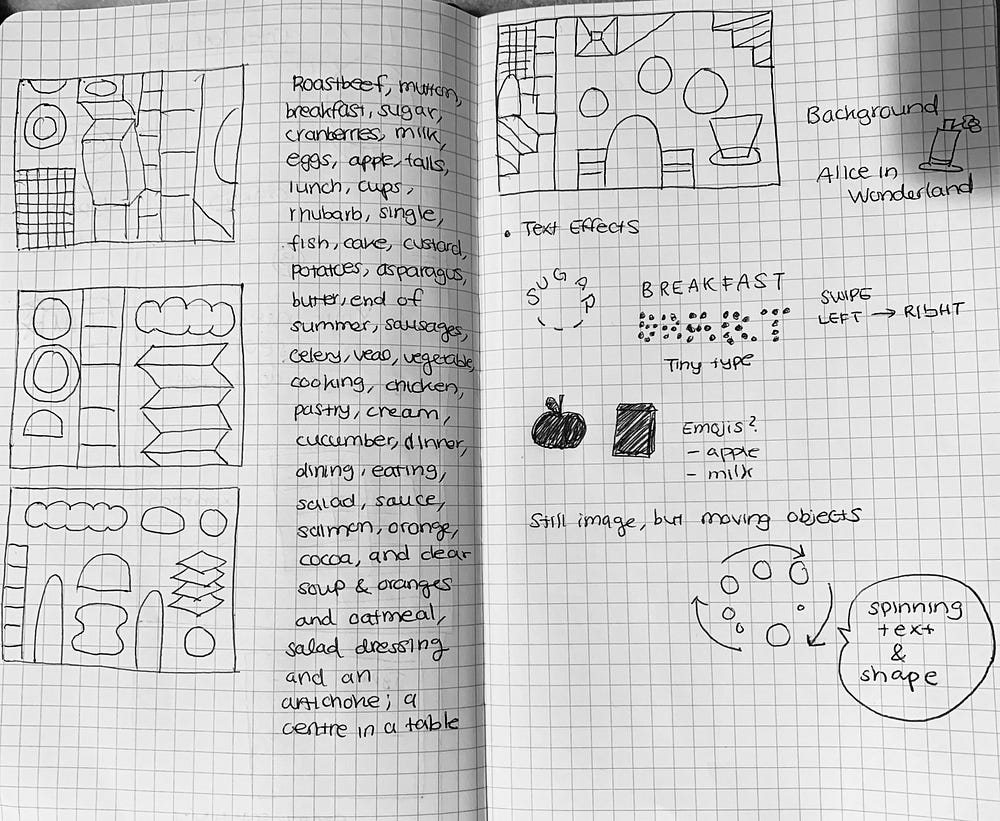 Roastbeef, mutton,
breakfast, sugar,
cranberries, milk,
eggs, apple, tails,
lunch, cups,
rhubarb, single,
fish, cake, custard,
potatoes, asparagus,
butter, end of
summer, sausages,
celery, veal, vegetable,
cooking, chicken,
pastry, cream,
cucumber, dinner,
dining, eating,
salad, sauce,
salmon, orange,
cocoa, and clear
soup & oranges
and oatmeal,
salad dressing
and an
artichoke; a
centre in a table
Background
Alice in
Wonderland
• Text Effects
SUGAR
BREAKFAST
Tiny type
SWIPE
LEFT → RIGHT
Emojis?
- apple
- milk
Still image, but moving objects
spinning
text
&
shape